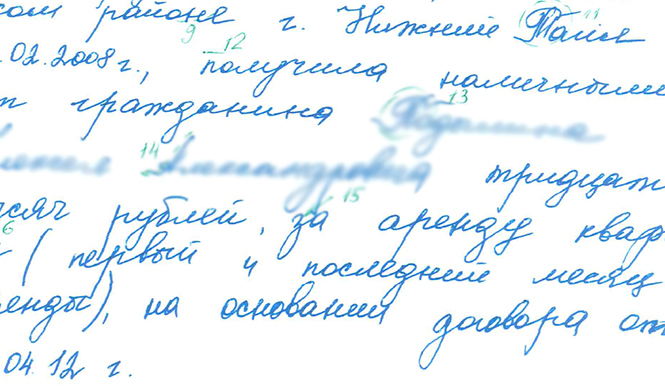 ком районе г. Нижний Тагил 11
9 12
.02.2008 г., получила наличными
т гражданина 13
14 тридцат
15
сяч рублей, за аренду кварт
6 ( первый и последний месяц
енды), на основании договора от
04.12 г.